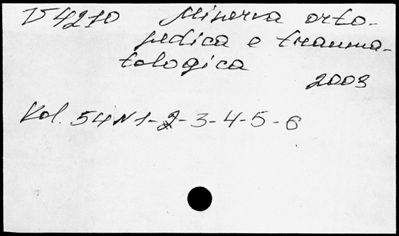 V4210 Minerva orto-
pedica e trauma-
tologica
2003
Vol. 54 N1-2-3-4-5-6